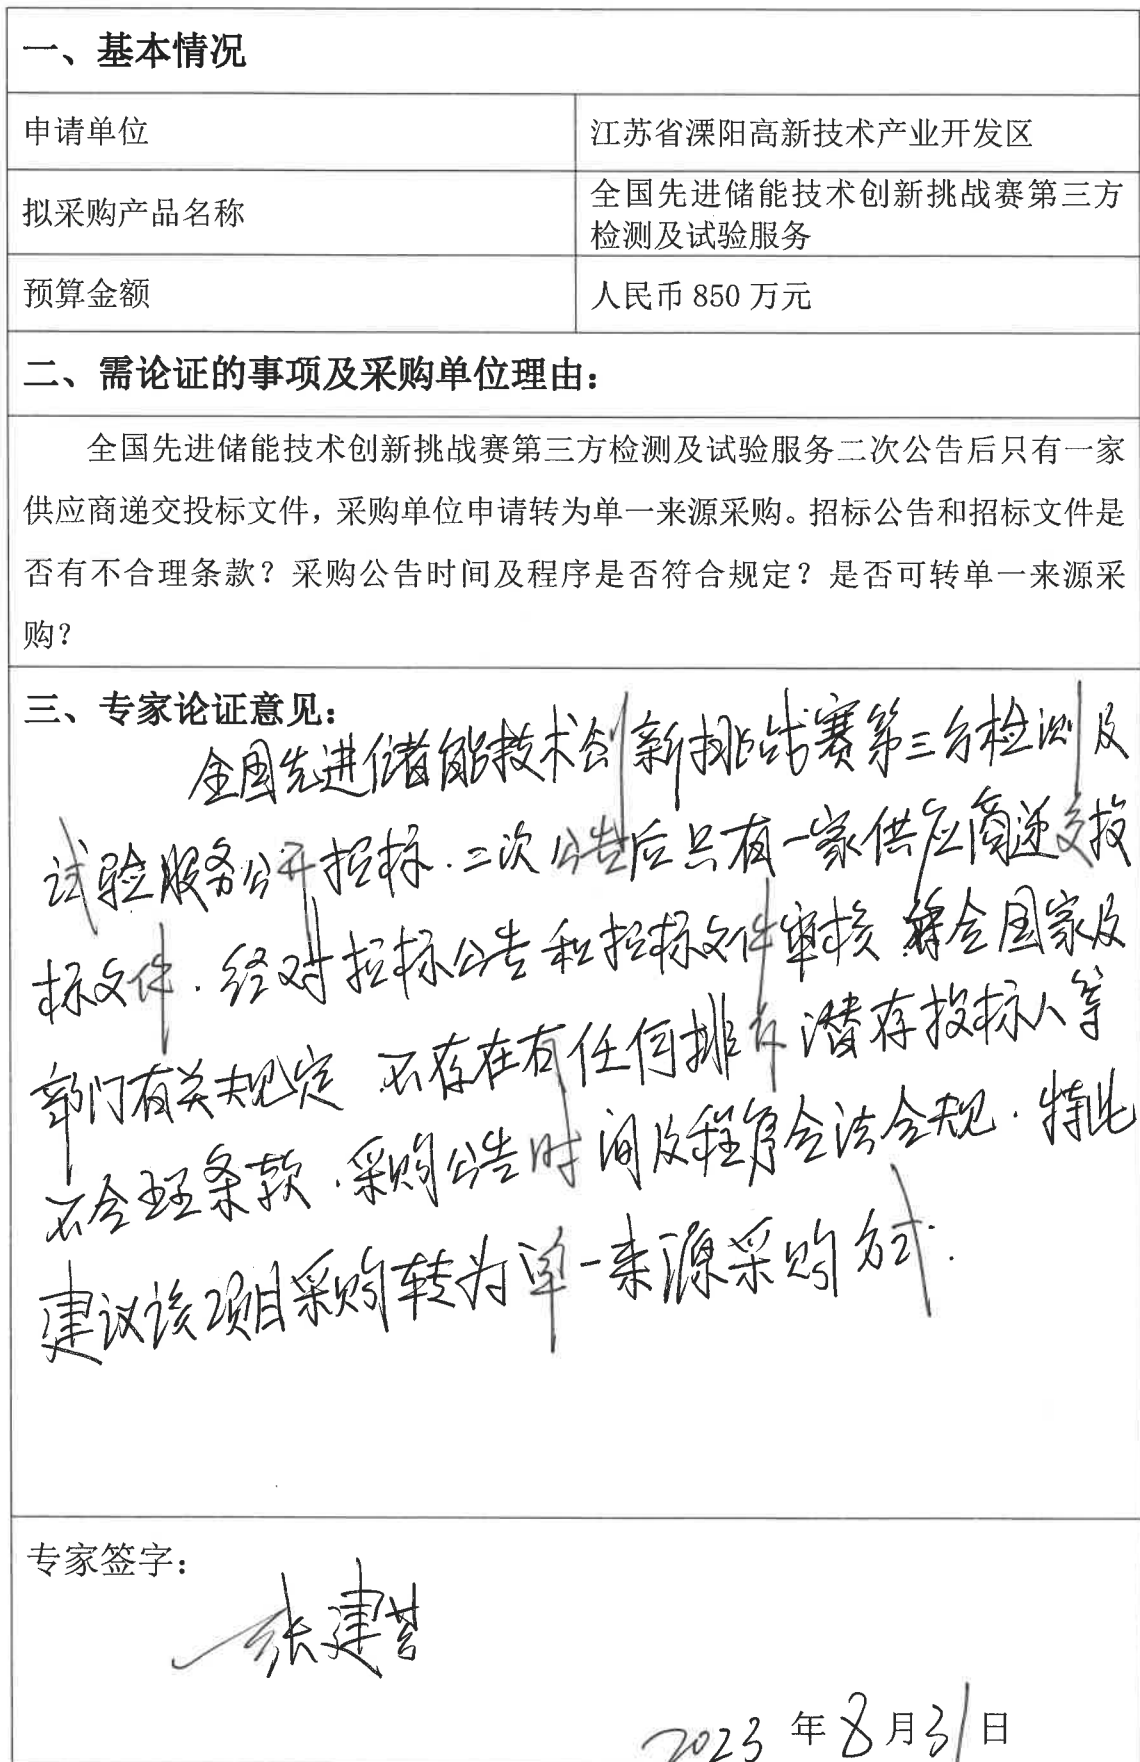 一、基本情况
申请单位
江苏省溧阳高新技术产业开发区
拟采购产品名称
全国先进储能技术创新挑战赛第三方
检测及试验服务
预算金额
人民币 850 万元
二、需论证的事项及采购单位理由：
全国先进储能技术创新挑战赛第三方检测及试验服务二次公告后只有一家
供应商递交投标文件，采购单位申请转为单一来源采购。招标公告和招标文件是
否有不合理条款？采购公告时间及程序是否符合规定？是否可转单一来源采
购？
三、专家论证意见：
全国先进储能技术创新挑战赛第三方检测及
试验服务公开招标.二次公告后只有一家供应商递交投
标文件.经对招标公告和招标文件审核 符合国家及
部门有关规定 不存在有任何排斥潜存投标人等
不合理条款.采购公告时间及程序合法合规.特此
建议该项目采购转为单一来源采购方式.
专家签字：
张建
2023 年 8 月 31 日